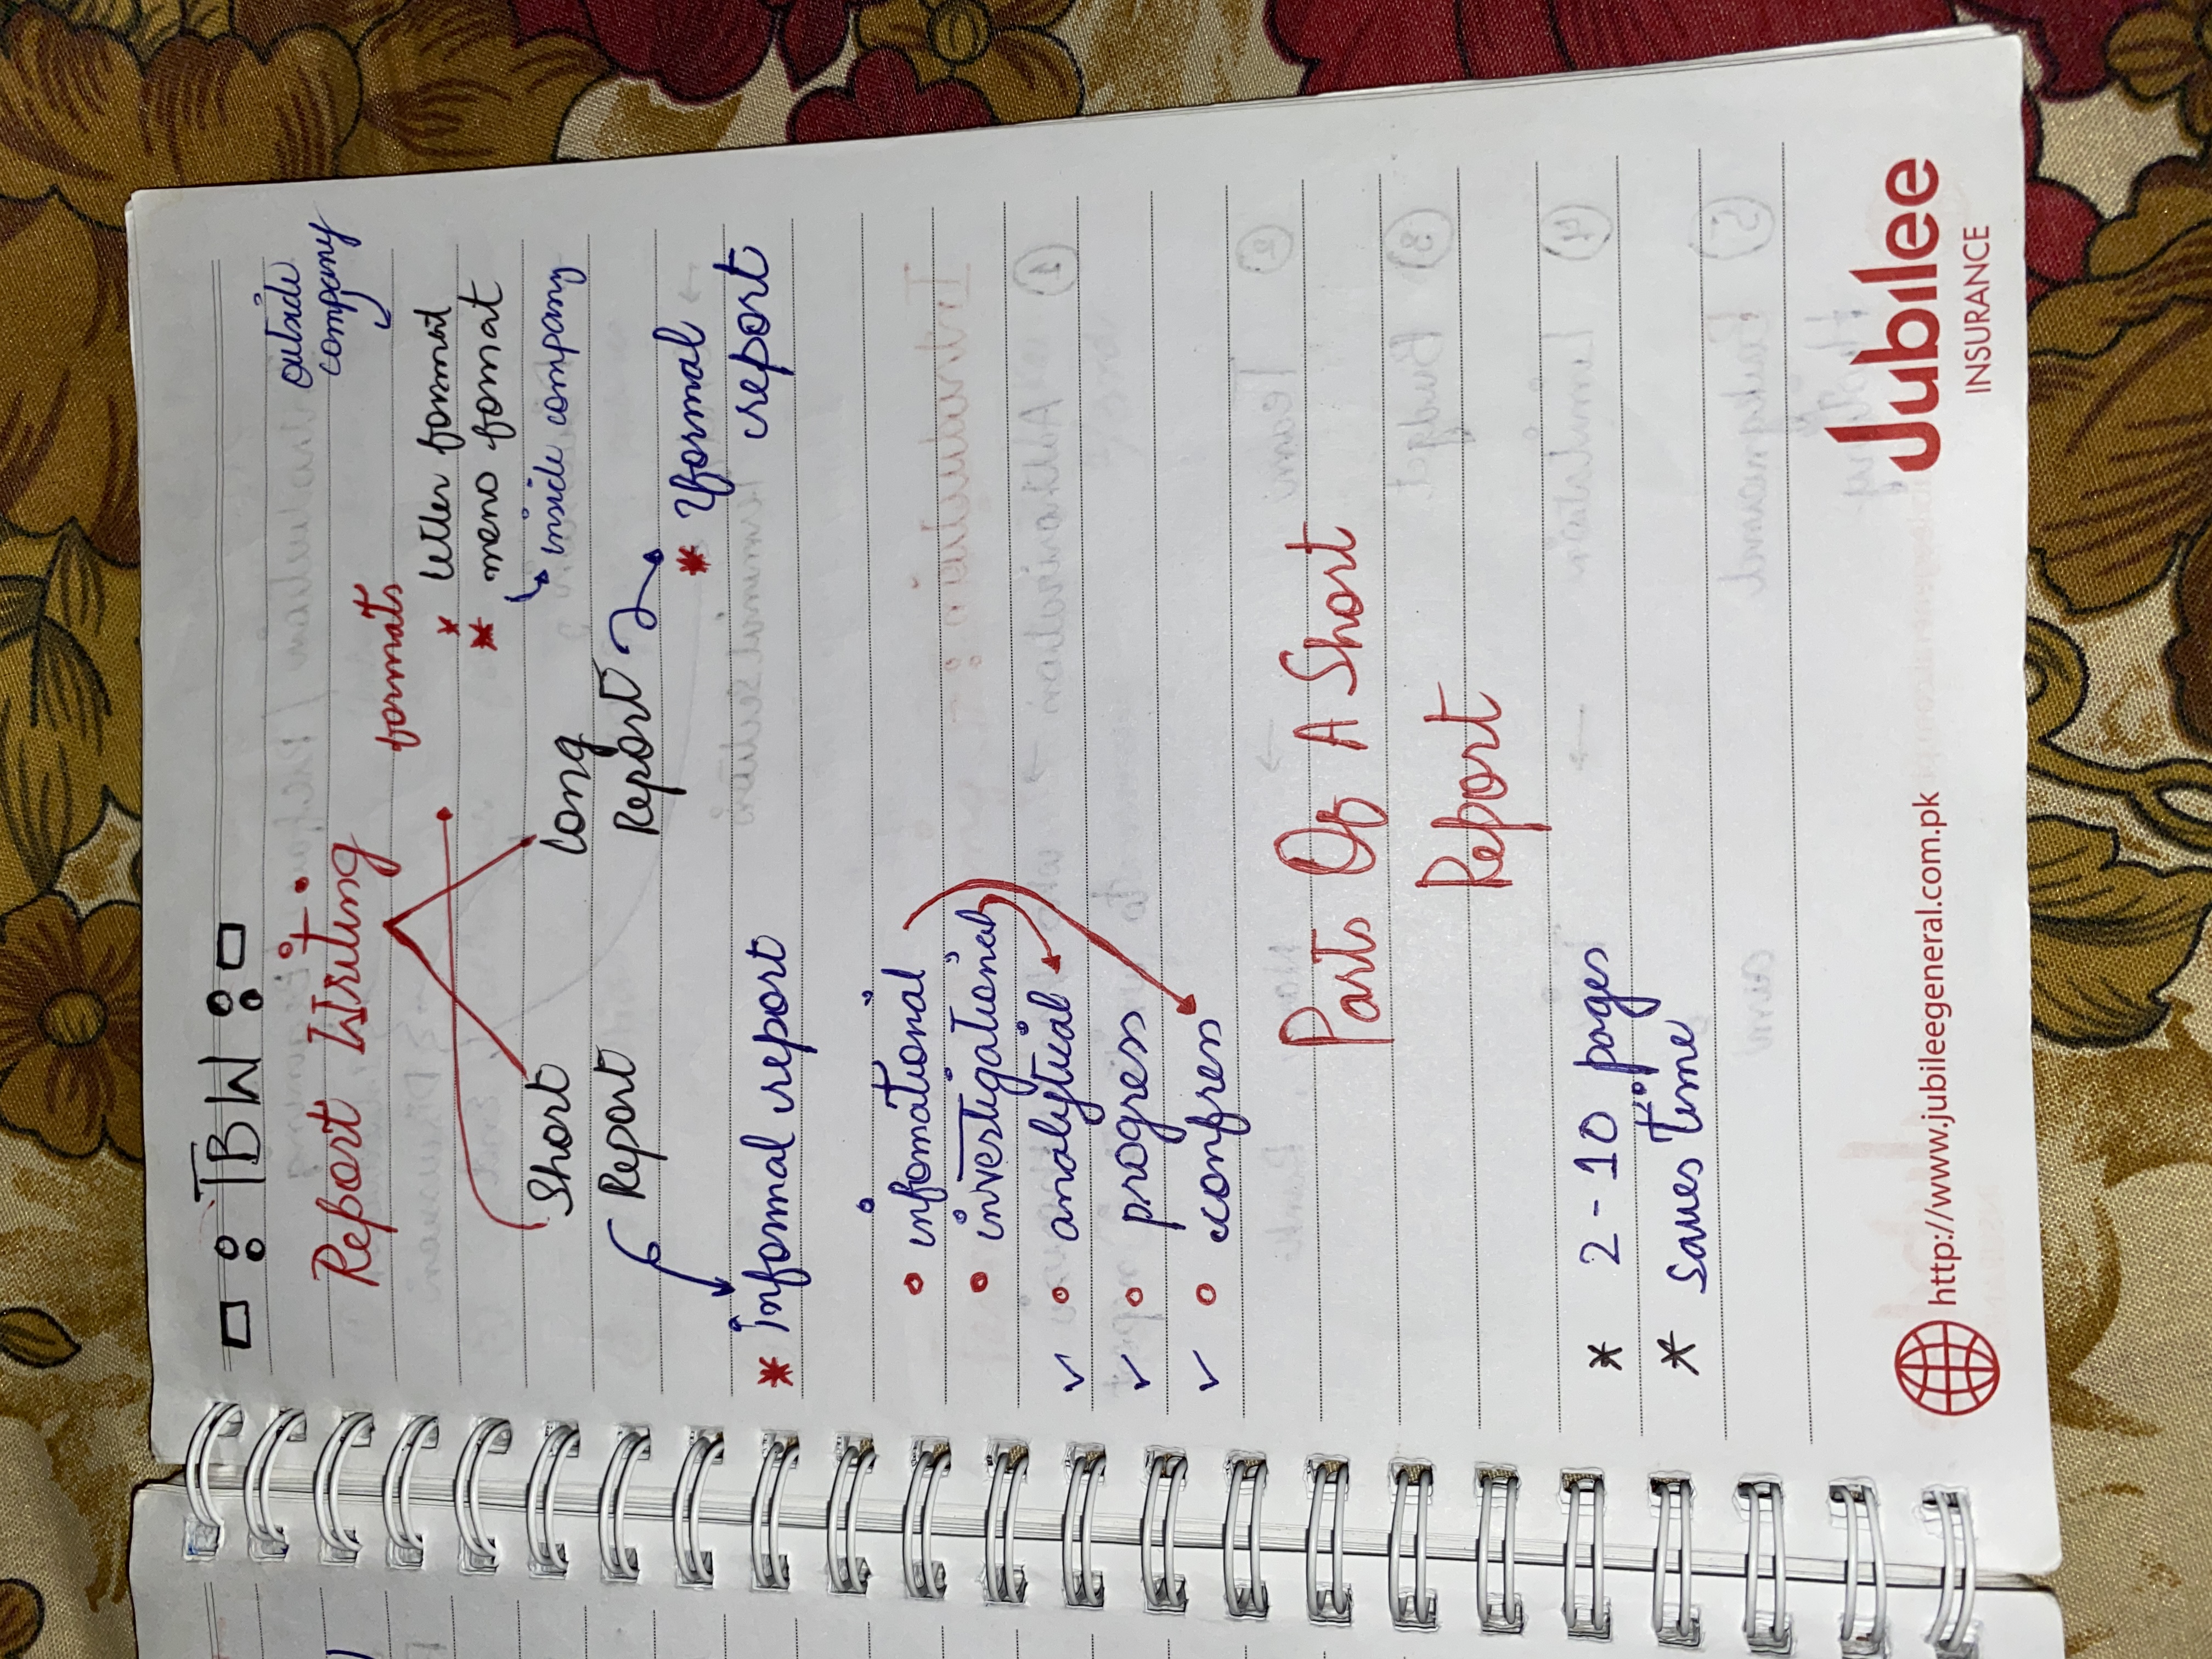 TBW
Report Writing
outside
company
formats
* letter format
* meno fomat
inside company
Short
Report
Long
Report
* formal
report
* Informal report
infomational
investigational
✓ analytical
✓ progress
✓ confress
Parts Of A Short
Report
* 2-10 pages
* saves time
http://www.jubileegeneral.com.pk
Jubilee
INSURANCE